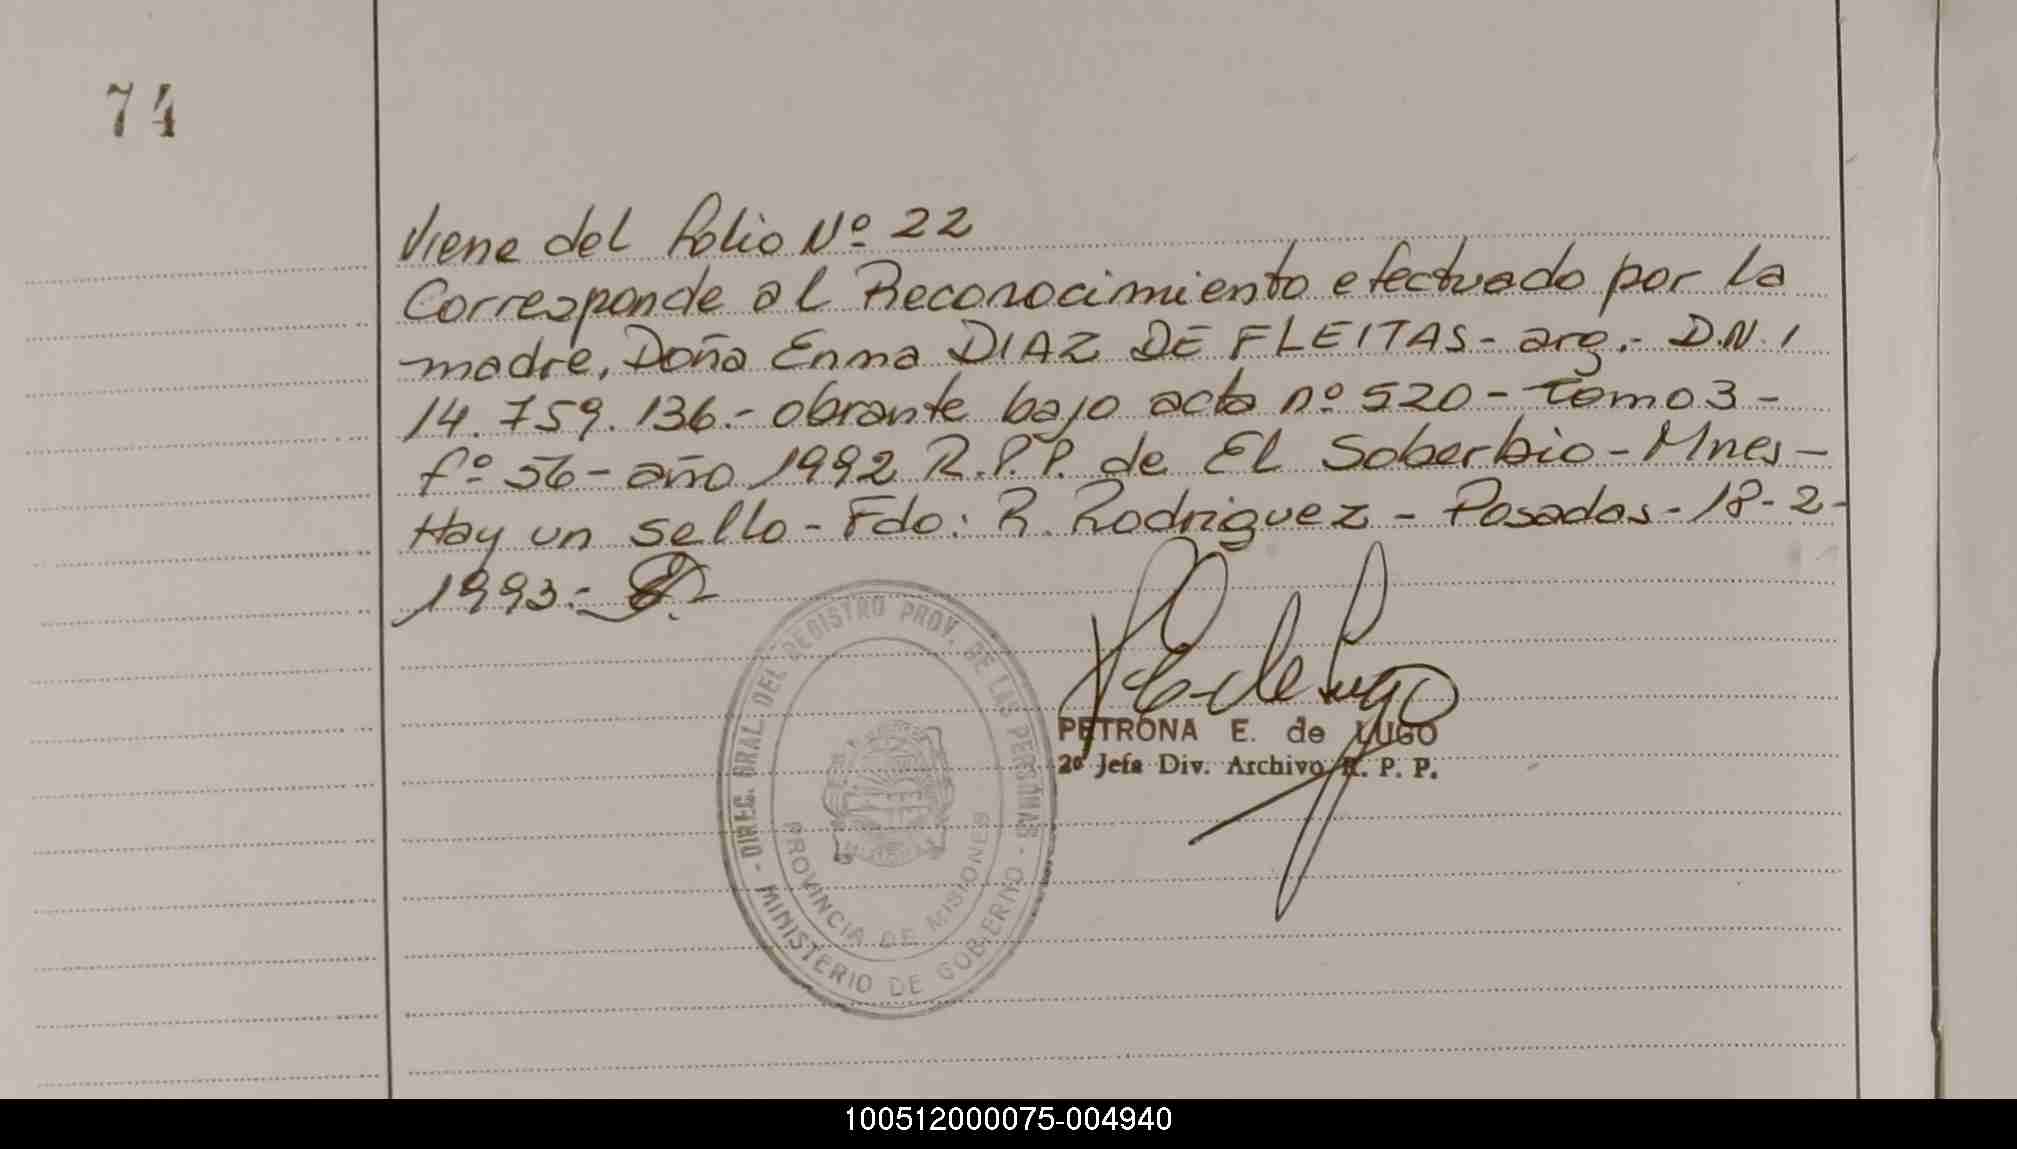 74
Viene del folio Nº 22
Corresponde al Reconocimiento efectuado por la
madre, Doña Enma DIAZ DE FLEITAS - arg.- D.N.I
14.759.136.- obrante bajo acta nº 520 - Tomo 3 -
fº 56 - año 1992 R.P.P. de El Soberbio - Mnes -
Hay un sello - Fdo: R. Rodriguez - Posadas - 18-2-
1993.-
P E de Lugo
PETRONA E. de LUGO
2º Jefa Div. Archivo R. P. P.
- DIREC. GRAL. DEL REGISTRO PROV. DE LAS PERSONAS -
MINISTERIO DE GOBIERNO
PROVINCIA DE MISIONES
100512000075-004940